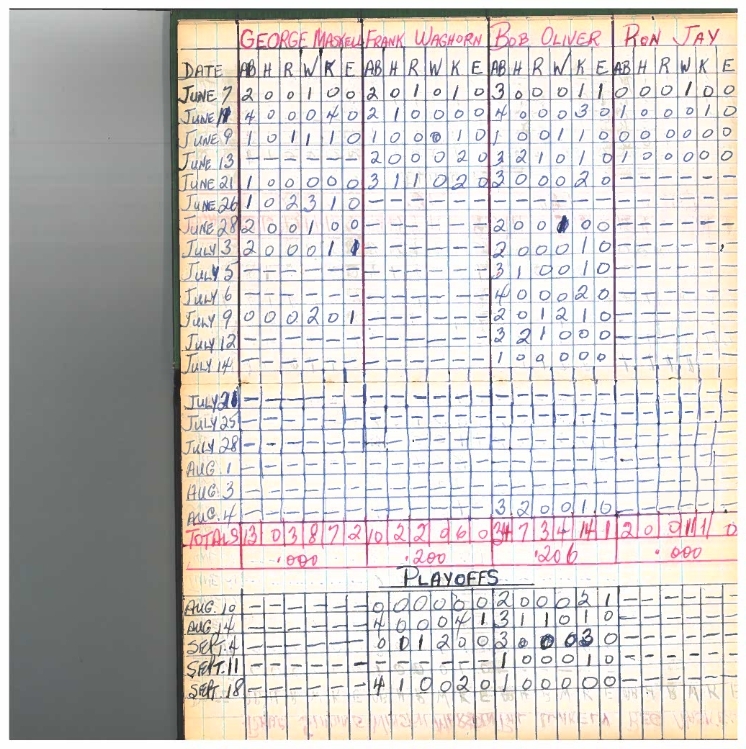 GEORGE MASKELL FRANK WAGHORN BOB OLIVER RON JAY
DATE AB H R W K E AB H R W K E AB H R W K E AB H R W K E
JUNE 7 2 0 0 1 0 0 2 0 1 0 1 0 3 0 0 0 1 1 0 0 0 1 0 0
JUNE 4 0 0 0 4 0 2 1 0 0 0 0 4 0 0 0 3 0 1 0 0 0 1 0
JUNE 9 1 0 1 1 1 0 1 0 0 0 1 0 1 0 0 1 1 0 0 0 0 0 0 0
JUNE 13 - - - - - - 2 0 0 0 2 0 3 2 1 0 1 0 1 0 0 0 0 0
JUNE 21 1 0 0 0 0 0 3 1 1 0 2 0 3 0 0 0 2 0 - - - - - -
JUNE 26 1 0 2 3 1 0 - - - - - - - - - - - - - - - - - -
JUNE 28 2 0 0 1 0 0 - - - - - - 2 0 0 1 0 0 - - - - - -
JULY 3 2 0 0 0 1 1 - - - - - - 2 0 0 0 1 0 - - - - - -
JULY 5 - - - - - - - - - - - - 3 1 0 0 1 0 - - - - - -
JULY 6 - - - - - - - - - - - - 4 0 0 0 2 0 - - - - - -
JULY 9 0 0 0 2 0 1 - - - - - - 2 0 1 2 1 0 - - - - - -
JULY 12 - - - - - - - - - - - - 3 2 1 0 0 0 - - - - - -
JULY 14 - - - - - - - - - - - - 1 0 0 0 0 0 - - - - - -
JULY - - - - - - - - - - - - - - - - - - - - - - - -
JULY 25 - - - - - - - - - - - - - - - - - - - - - - - -
JULY 28 - - - - - - - - - - - - - - - - - - - - - - - -
AUG. 1 - - - - - - - - - - - - - - - - - - - - - - - -
AUG. 3 - - - - - - - - - - - - - - - - - - - - - - - -
AUG. 4 - - - - - - - - - - - - 3 2 0 0 1 0 - - - - - -
TOTALS 13 0 3 8 7 2 10 2 2 0 6 0 34 7 3 4 14 1 2 0 0 1 1 0
.000 .200 .206 .000
PLAYOFFS
AUG. 10 - - - - - - 0 0 0 0 0 0 2 0 0 0 2 1 - - - - - -
AUG. 14 - - - - - - 4 0 0 0 4 1 3 1 1 0 1 0 - - - - - -
SEPT. 4 - - - - - - 0 0 1 2 0 0 3 0 0 0 3 0 - - - - - -
SEPT. 11 - - - - - - - - - - - - 1 0 0 0 1 0 - - - - - -
SEPT. 18 - - - - - - 4 1 0 0 2 0 1 0 0 0 0 0 - - - - - -